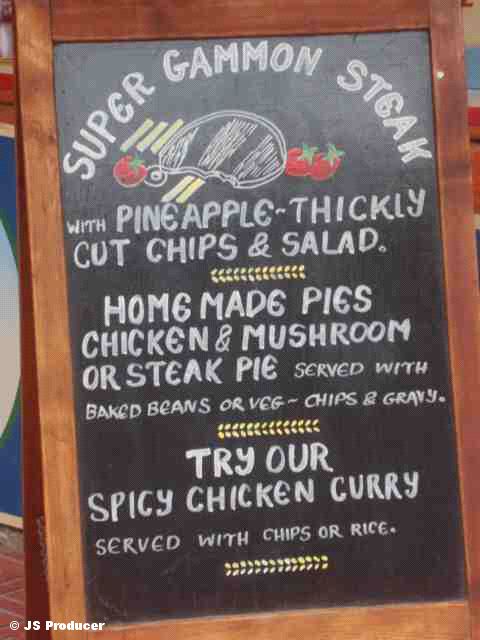 SUPER GAMMON STEAK
WITH PINEAPPLE~THICKLY
CUT CHIPS & SALAD.
HOME MADE PIES
CHICKEN & MUSHROOM
OR STEAK PIE SERVED WITH
BAKED BEANS OR VEG~ CHIPS & GRAVY.
TRY OUR
SPICY CHICKEN CURRY
SERVED WITH CHIPS OR RICE.
© JS Producer